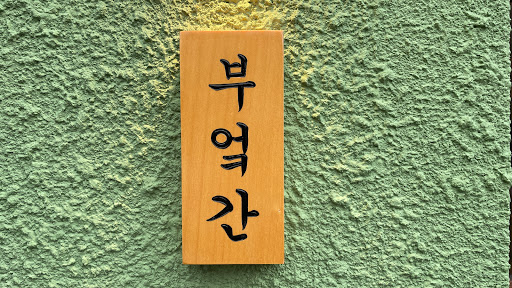 부
엌
간